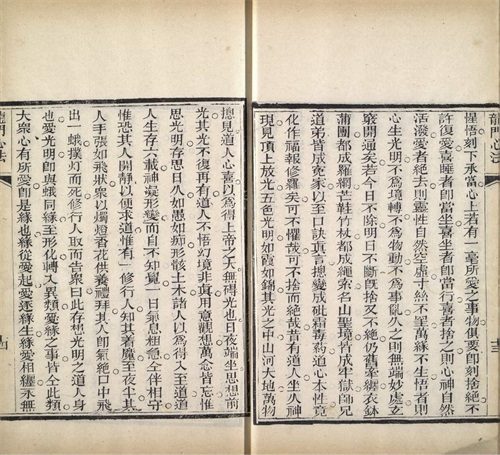 心法
十三
惺悟刻下承當心上若有一毫所愛之事物俱要卽刻捨絕不
許復愛喜睡者卽當坐喜坐者卽當行喜者捨之則心神自然
活潑愛者絕去則靈性自然空虛寸絲不罣萬緣不生悟者則
心生光明不為境轉不為物動不為事亂久之則無端妙處玄
竅開通矣若今日不除明日不斷旣捨又不絕仍舊案纏衣鉢
蒲團都成羅網芒鞋竹杖都成繩索名山聖境仍成牢獄師兄
道弟皆成寃家以至口訣眞言摠變成砒霜毒葯道心本性竟
化作福報修羅矣可不懼哉可不捨而絕哉昔有道人坐入神
現見頂上放光五色光明如霞如錦其光之中山河大地萬物
摠見道人心喜以為得上帝之天無碍光也日夜端坐思想前
光其光不復再有道人不悟幻境非眞用意觀想萬念皆忘惟
思光明存思日久如愚如痴形骸土木諸人以為得入至道道
人生存一載神凝形變而自不知覺一日氣息粗急仝伴相守
惟恐其人開靜以便求道惟有一修行人知其着魔至夜半其
人手張如飛狀衆以燭燈香花供養禮拜其人卽氣絕口中飛
出一蛾撲灯而死修行人取而告衆曰此存想光明之道人身
也愛光明卽與蛾同緣至形化轉入異類愛緣之事皆仝此類
大衆心有所愛卽是緣也緣從愛起愛逐緣生緣愛相纏永無
龍門心法
十四